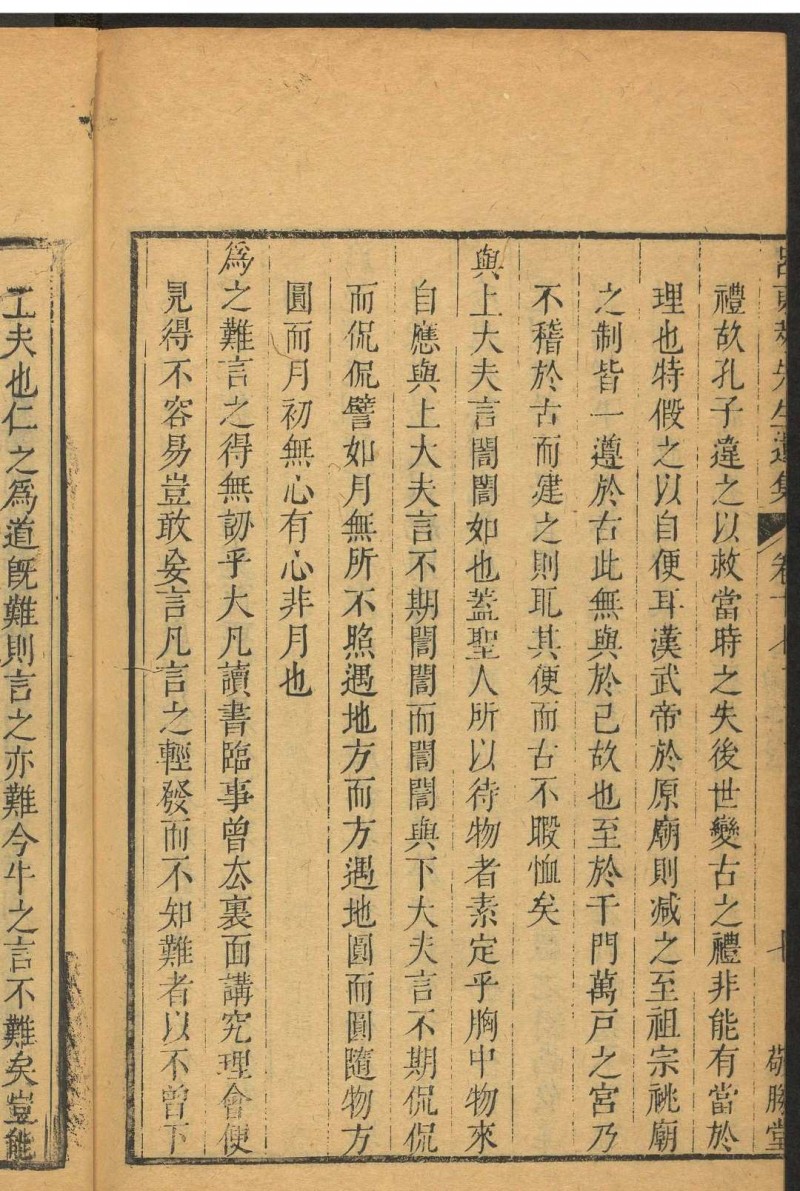 呂東萊先生遺集 卷十 七 敬勝堂
禮故孔子違之以救當時之失後世變古之禮非能有當於
理也特假之以自便耳漢武帝於原廟則减之至祖宗祧廟
之制皆一遵於古此無與於已故也至於千門萬戸之宮乃
不稽於古而建之則耴其便而古不暇恤矣
與上大夫言誾誾如也葢聖人所以待物者素定乎胸中物來
自應與上大夫言不期誾誾而誾誾與下大夫言不期侃侃
而侃侃譬如月無所不照遇地方而方遇地圓而圓隨物方
圓而月初無心有心非月也
爲之難言之得無訒乎大凡讀書臨事曾厺裏面講究理會便
見得不容易豈敢妄言凡言之輕發而不知難者以不曾下
工夫也仁之爲道旣難則言之亦難今牛之言不難矣豈能